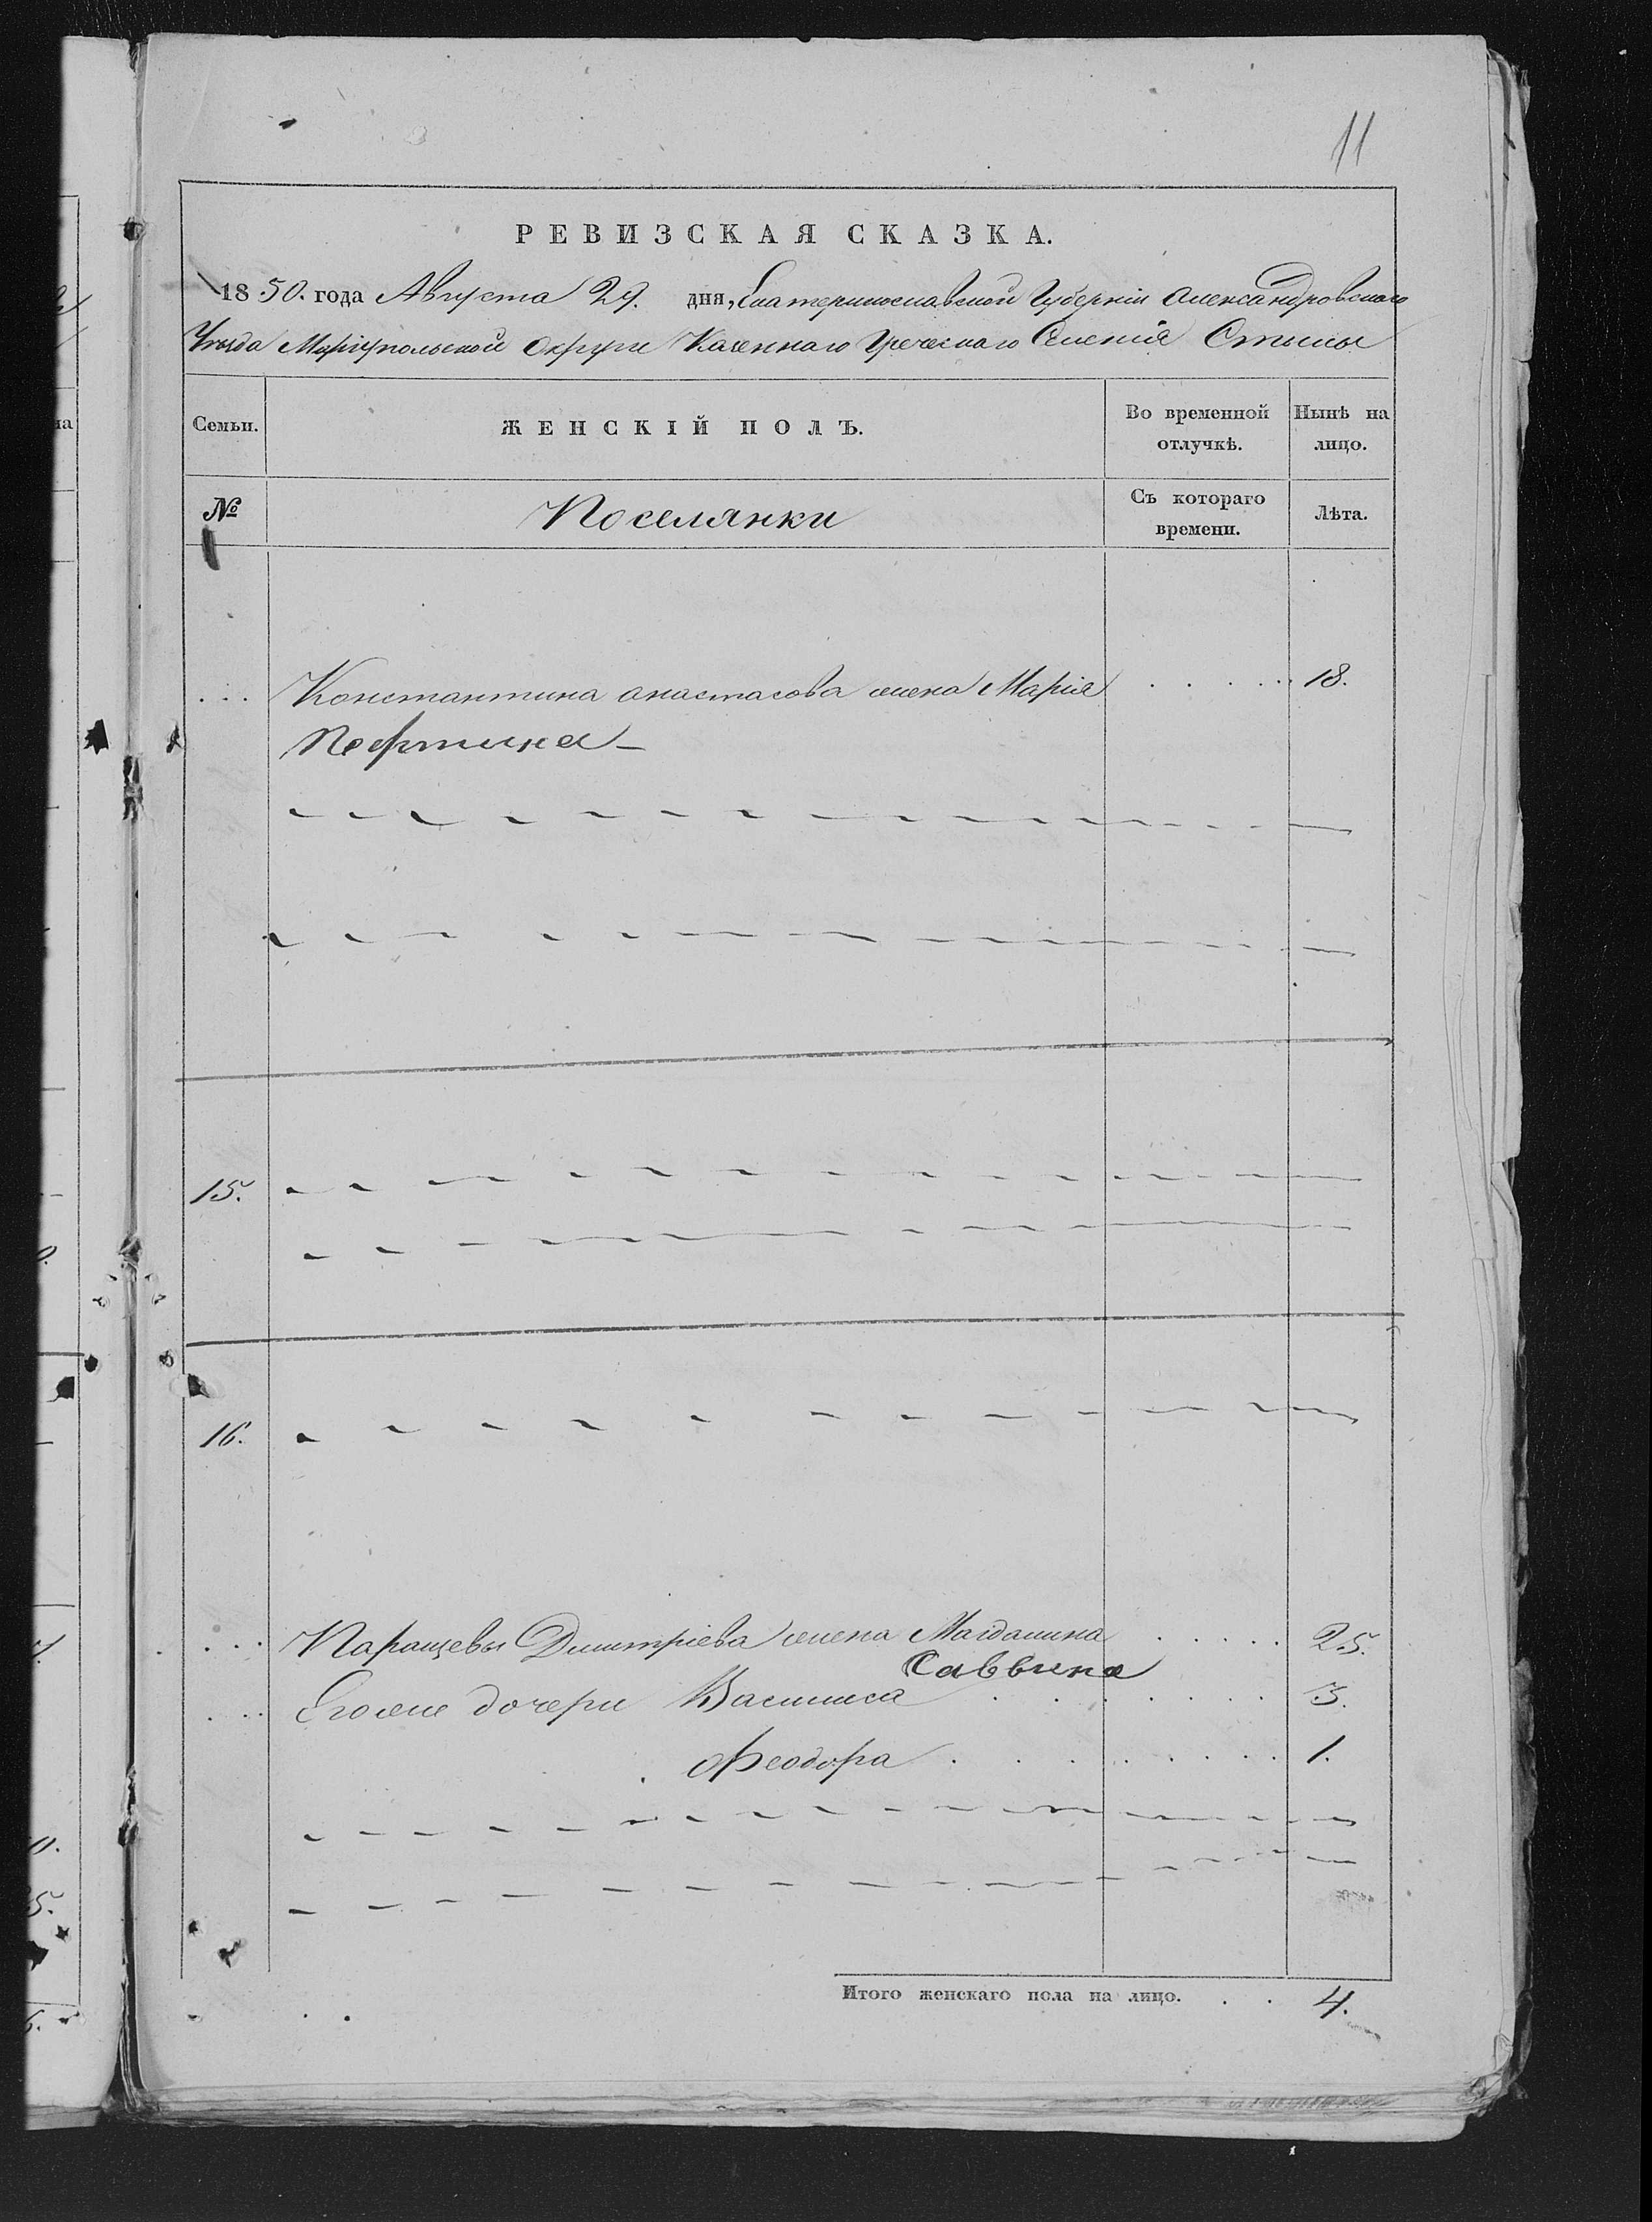 11
РЕВИЗСКАЯ СКАЗКА.
1850. года Августа 29. дня, Екатеринославской Губерніи Александровскаго
Уезда Маріупольской Округи Казеннаго Греческаго Селенія Стылы
Семьи. ЖЕНСКІЙ ПОЛЪ. Во временной отлучкѣ. Нынѣ на лицо.
№ Поселянки Съ котораго времени. Лѣта.
Константина Анастасова жена Марія 18.
15.
16.
Паращевы Дмитріева жена Магдалина 25.
Саввина
Егоже дочери Васи­лиса 3.
Феодора 1.
Итого женскаго пола на лицо. 4.